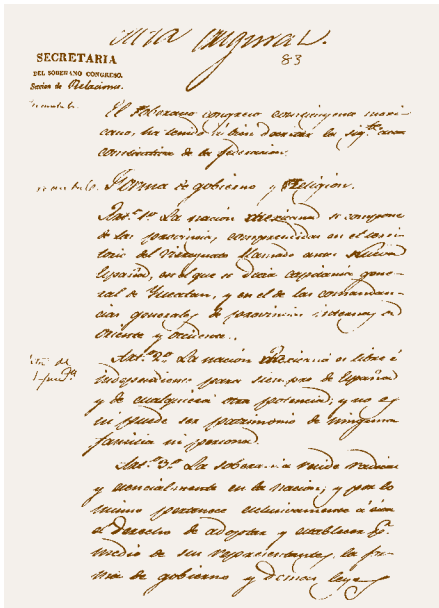 Acta original.
83
SECRETARIA
DEL SOBERANO CONGRESO.
Seccion de Relaciones.
El soberano congreso constituyente mexi-
cano, ha tenido á bien decretar la sig.te acta
constitutiva de la federacion.
Forma de gobierno y Religion.
Art.o 1.o La nacion mexicana se compone
de las provincias comprendidas en el terri-
torio del Vireynato llamado antes Nueva
España, en el que se decia capitania gene-
ral de Yucatan, y en el de las comandan-
cias generales de provincias internas de
oriente y occidente.
Art.o 2.o La nacion Mexicana es libre é
independiente para siempre de España
y de cualquiera otra potencia; y no es
ni puede ser patrimonio de ninguna
familia ni persona.
Art.o 3.o La soberania reside radical
y esencialmente en la nacion; y por lo
mismo pertenece esclusivamente á ésta
el derecho de adoptar y establecer p.r
medio de sus representantes la for-
ma de gobierno y demas leyes